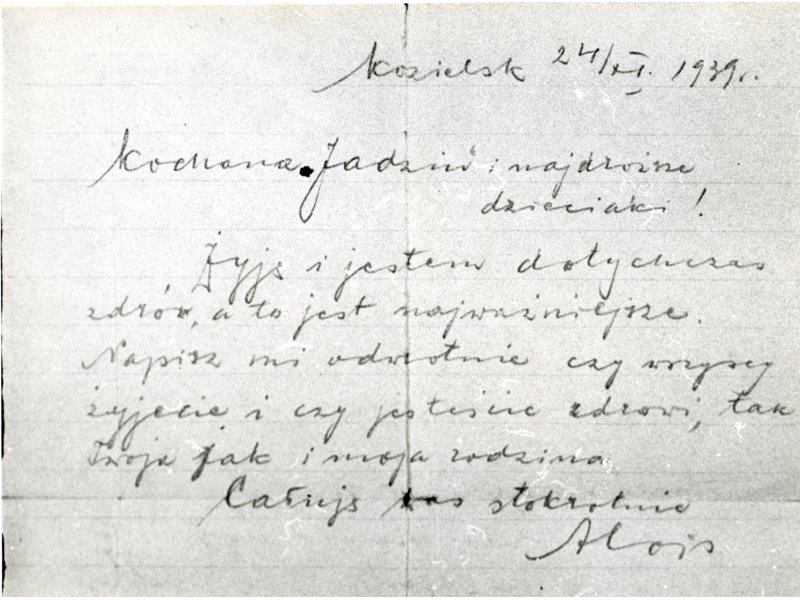 Kozielsk 24/XI. 1939 r.
Kochana Jadziu i najdroższe
dzieciaki!
Żyję i jestem dotychczas
zdrów, a to jest najważniejsze.
Napisz mi odwrotnie czy wszyscy
żyjecie i czy jesteście zdrowi, tak
Twoja jak i moja rodzina
Całuję Was stokrotnie
Alojs